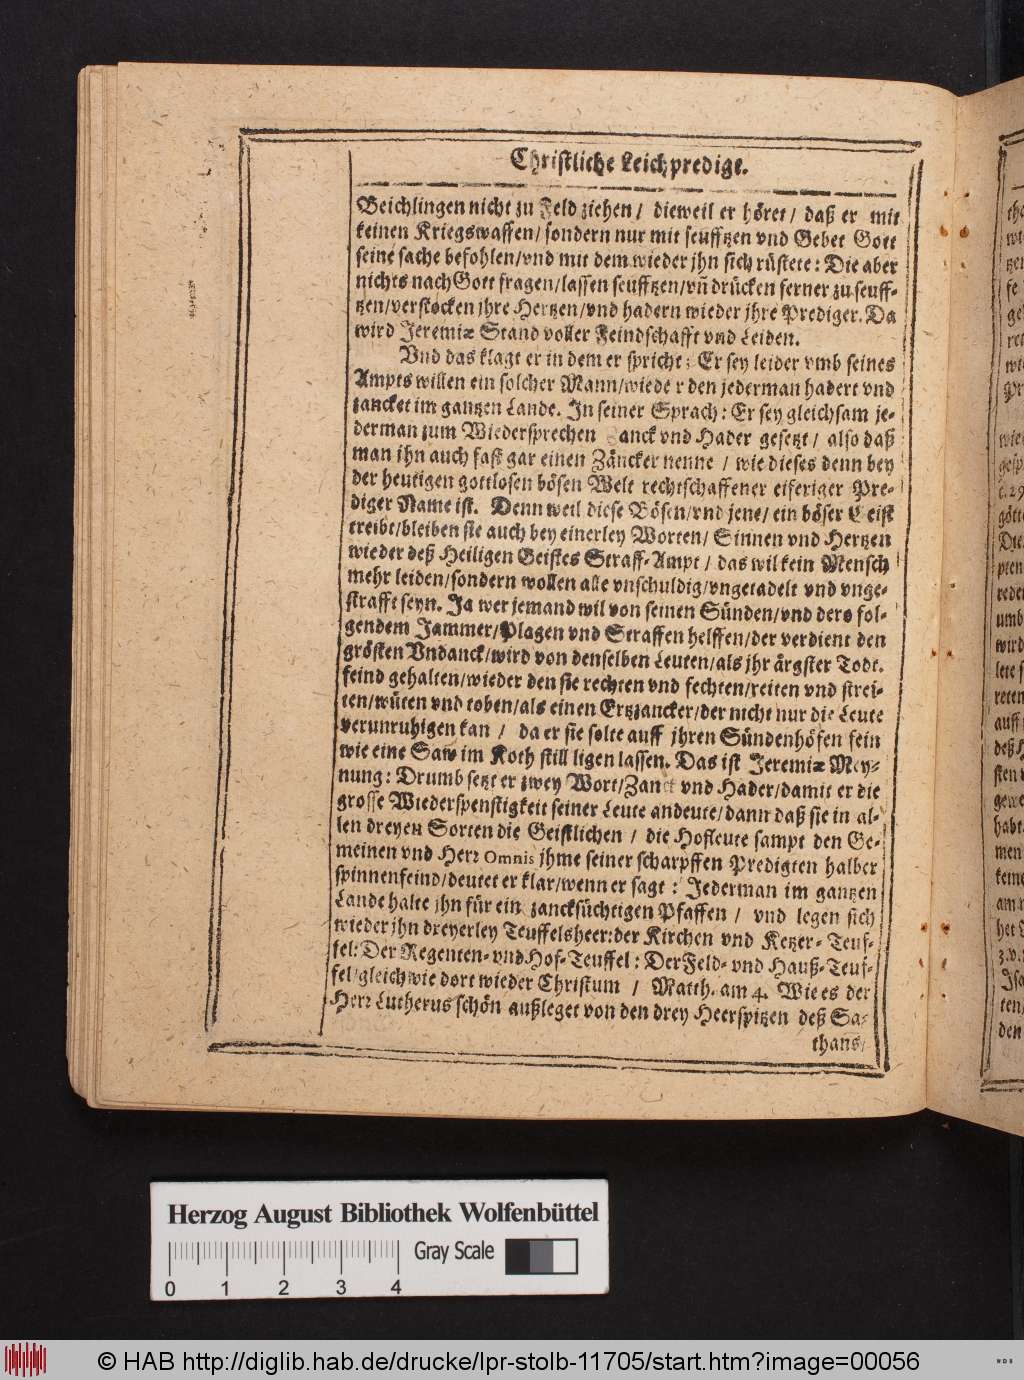 Christliche Leichpredigt.
Beichlingen nicht zu Feld ziehen / dieweil er höret / daß er mit
keinen Kriegswaffen / sondern nur mit seufftzen vnd Gebet Gott
seine sache befohlen / vnd mit dem wieder jhn sich rüstete: Die aber
nichts nach Gott fragen / lassen seufftzen / vñ drücken ferner zu seuff-
tzen / verstocken jhre Hertzen / vnd hadern wieder jhre Prediger. Da
wird Jeremiæ Stand voller Feindschafft vnd Leiden.
Vnd das klagt er in dem er spricht: Er sey leider vmb seines
Ampts willen ein solcher Mann / wieder den jederman hadert vnd
zancket im gantzen Lande. In seiner Sprach: Er sey gleichsam je-
derman zum Wiedersprechen Zanck vnd Hader gesetzt / also daß
man ihn auch fast gar einen Zäncker nenne / wie dieses denn bey
der heutigen gottlosen bösen Welt rechtschaffener eiferiger Pre-
diger Name ist. Denn weil diese Bösen / vnd jene / ein böser Geist
treibt / bleiben sie auch bey einerley Worten / Sinnen vnd Hertzen
wieder deß Heiligen Geistes Straff-Ampt / das wil kein Mensch
mehr leiden / sondern wollen alle vnschuldig / vngetadelt vnd vnge-
strafft seyn. Ja wer jemand wil von seinen Sünden / vnd dero fol-
gendem Jammer / Plagen vnd Straffen helffen / der verdient den
grösten Vndanck / wird von denselben Leuten / als jhr ärgster Todt-
feind gehalten / wieder den sie rechten vnd fechten / reiten vnd strei-
ten / wüten vnd toben / als einen Ertzzancker / der nicht nur die Leute
verunruhigen kan / da er sie solte auff jhren Sündenhöfen fein
wie eine Saw im Koth still ligen lassen. Das ist Jeremiæ Mey-
nung: Drumb setzt er zwey Wort / Zanck vnd Hader / damit er die
grosse Wiederspenstigkeit seiner Leute andeute / dann daß sie in al-
len dreyen Sorten die Geistlichen / die Hofleute sampt den Ge-
meinen vnd Herr Omnis jhme seiner scharpffen Predigten halber
spinnenfeind / deutet er klar / wenn er sagt: Jederman im gantzen
Lande halte jhn für ein zancksüchtigen Pfaffen / vnd legen sich
wieder jhn dreyerley Teuffelsheer: der Kirchen vnd Ketzer-Teuf-
fel: Der Regenten- vnd Hof-Teuffel: Der Feld- vnd Hauß-Teuf-
fel / gleich wie dort wieder Christum / Matth. am 4. Wie es der
Herr Lutherus schön außleget von den drey Heerspitzen deß Sa-
thans /
Herzog August Bibliothek Wolfenbüttel
Gray Scale
0 1 2 3 4
© HAB http://diglib.hab.de/drucke/lpr-stolb-11705/start.htm?image=00056